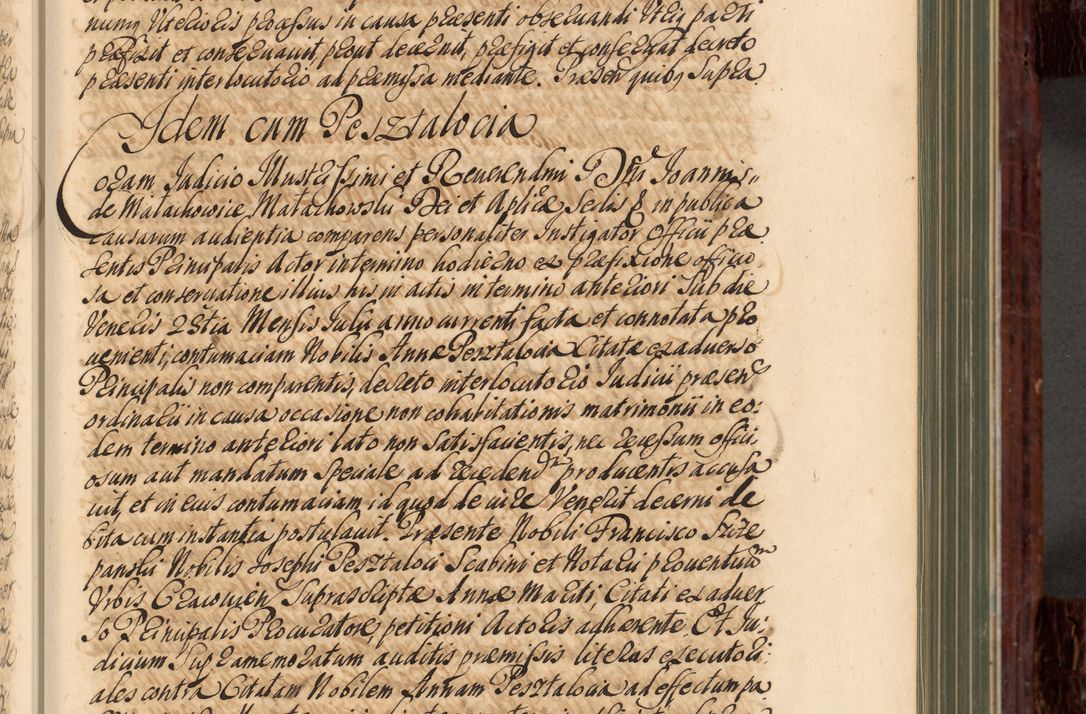 numq Uteriois processus in causa præsenti observandi Utriq parti
præfixit et conservavit, prout decernit, præfigit et conservat decreto
præsenti interlocutorio ad præmissa mediante. Præsen quibq Supra
Idem cum Pesztalocia
Coram Judicio Illustrissimi et Reverendmi D Dni Joannis
de Małachowice Małachowski Dei et Aplicæ Sedis & in publica
causarum audientia comparens personaliter Instigator officii præ
sentis Principalis Actor in termino hodierno ex præfixione officio
sa et conservatione illius his in actis in termino anteriori Sub die
Veneris 28tia Mensis Julii anno currenti facta et connotata pro
venienti, contumaciam Nobilis Annæ Pesztalocia Citatæ ex adverso
Principalis non comparentis, decreto interlocutorio Judicii præsen
ordinarii in causa occasione non cohabitationis matrimonii in eo:
dem termino anteriori lato non Satisfacientis, nec recessum offici
osum aut mandatum Speciale ad recedendm producentis accusa
vit, et in eius contumaciam id quod de iure Venerit decerni de
bita cum instantia postulavit. Præsente Nobili Francisco Szcze
panski Nobilis Josephi Pesztaloci Scabini et Notarii proventum
Urbis Cracovien Suprascriptæ Annæ Mariti, Citati ex adver
so Principalis Procuratore, petitioni Actoris adhærente. Et Ju:
dicium Supramemoratum auditis præmissis literas executori
ales contra Citatam Nobilem Annam Pesztalocia ad effectum pa